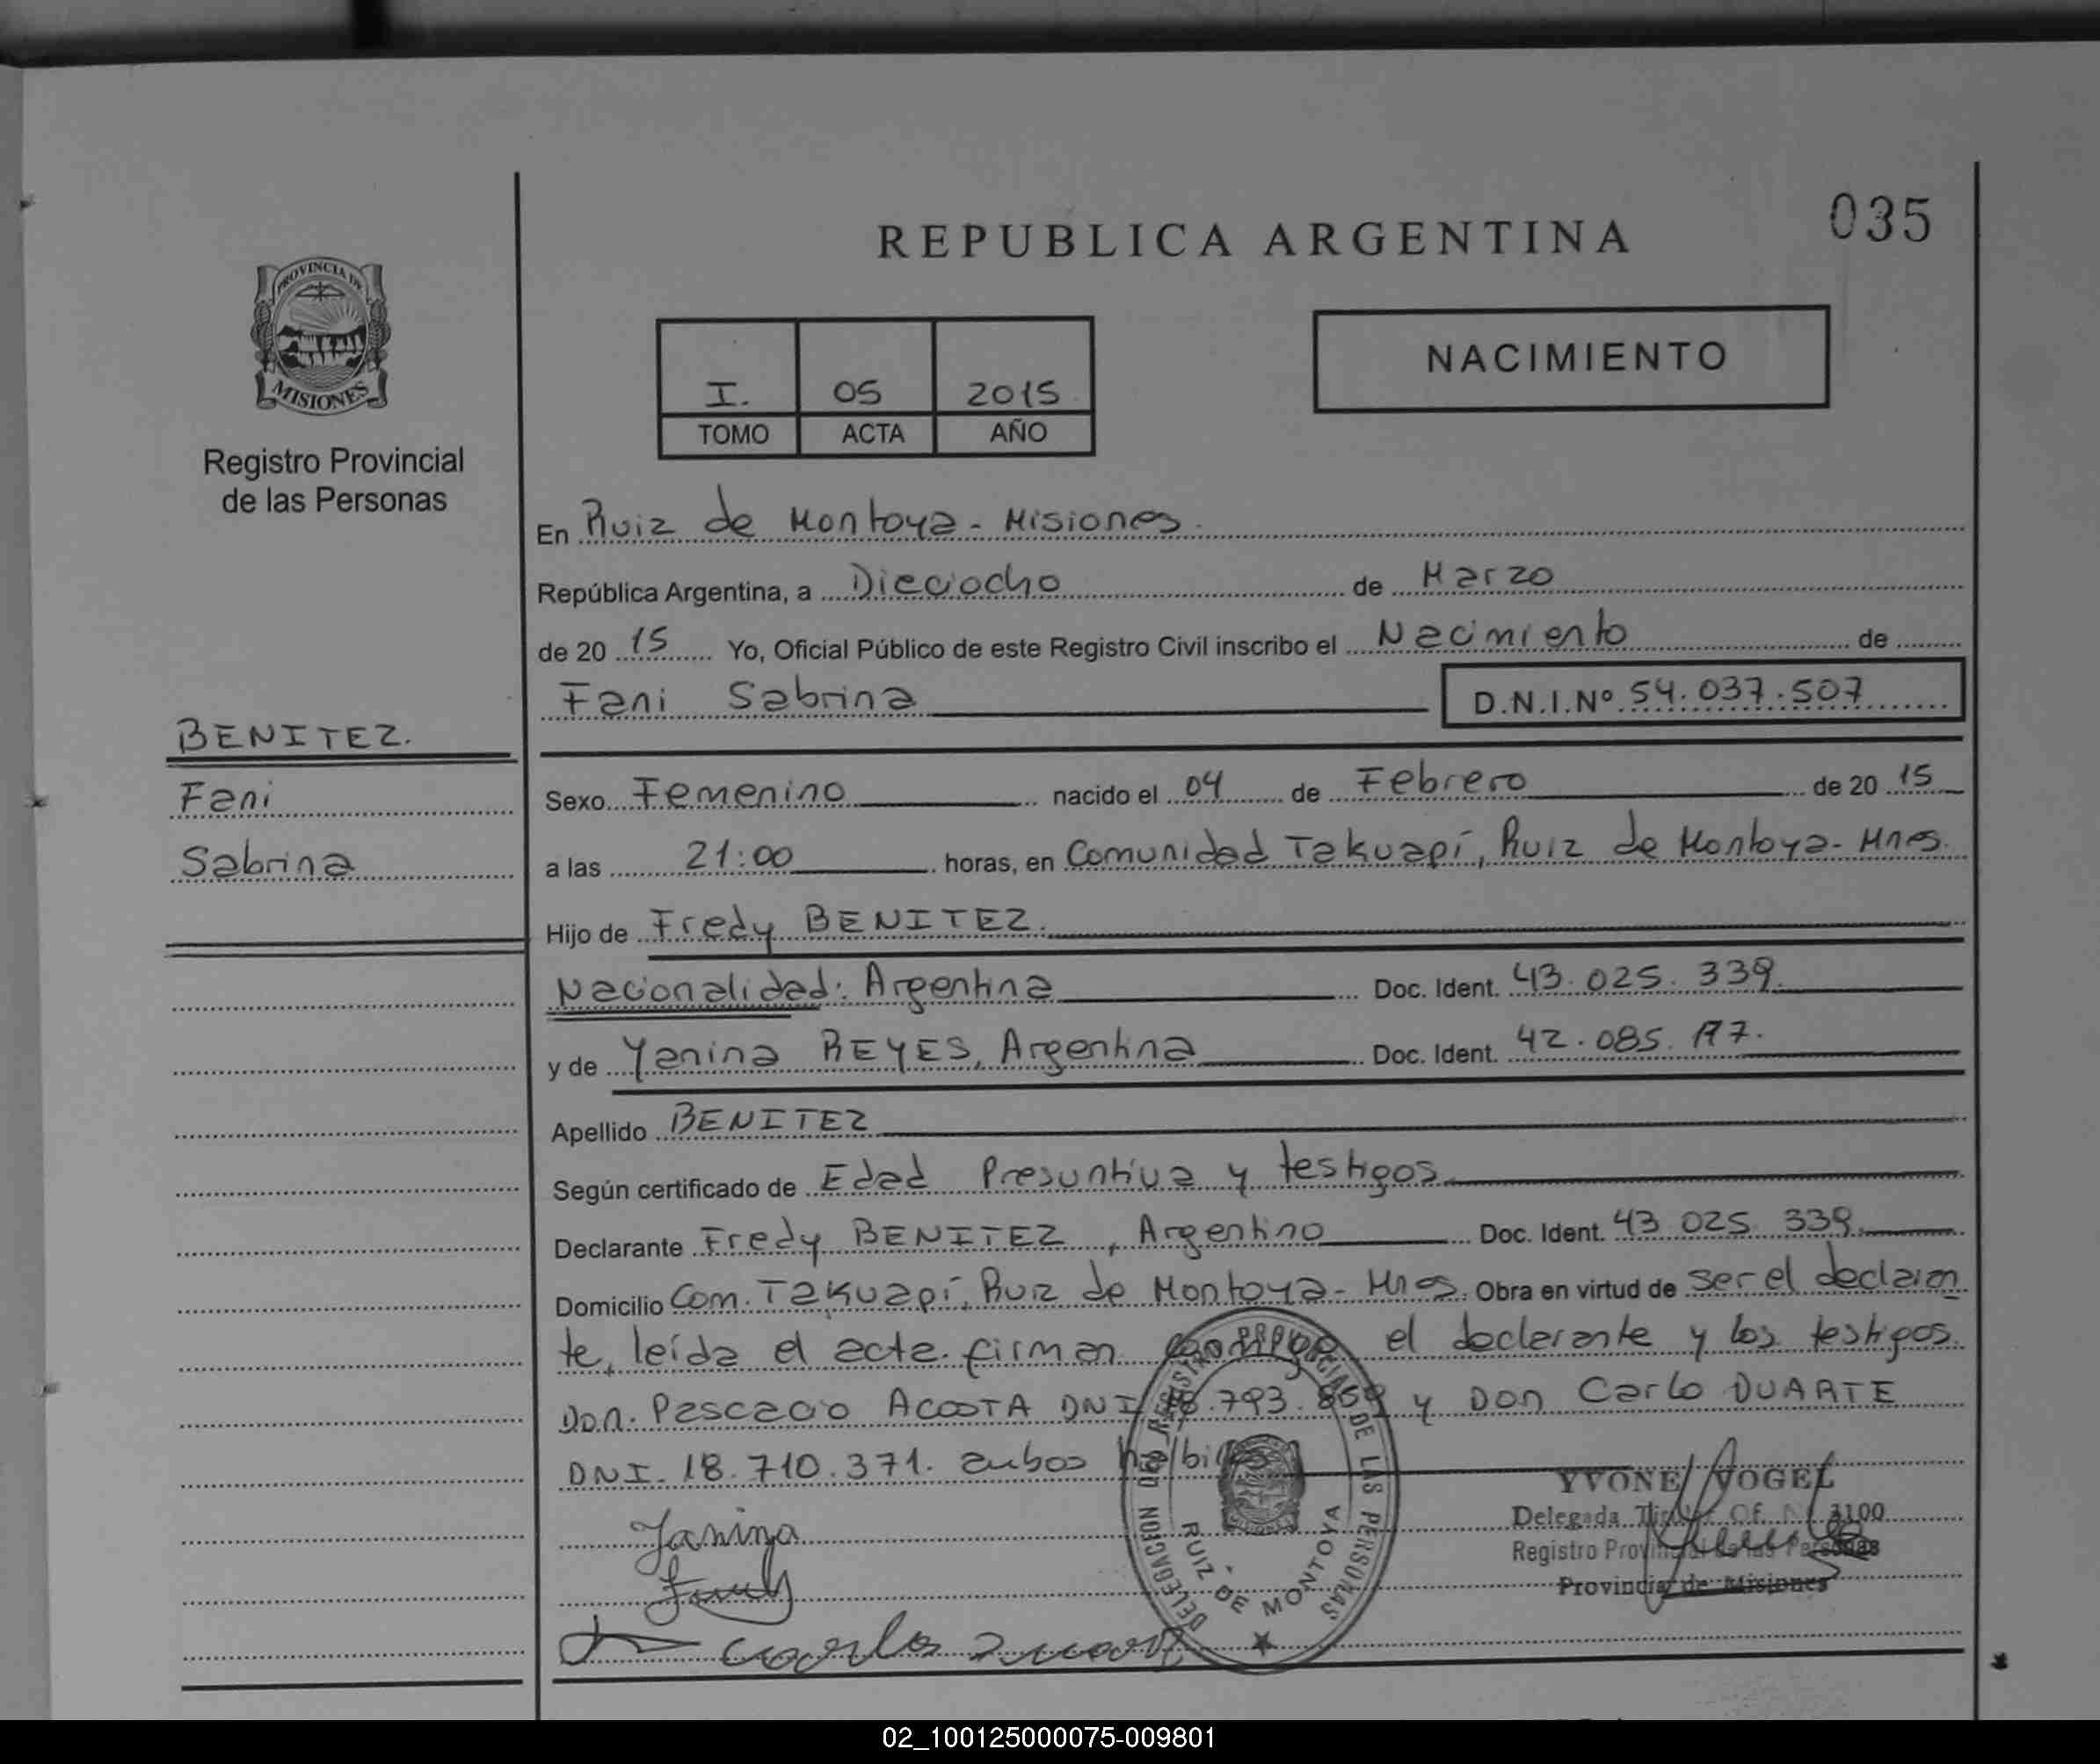 035
REPUBLICA ARGENTINA
PROVINCIA DE
MISIONES
Registro Provincial
de las Personas
NACIMIENTO
I. 05 2015
TOMO ACTA AÑO
En Ruiz de Montoya - Misiones.
República Argentina, a Dieciocho de Marzo
de 20 15 Yo, Oficial Público de este Registro Civil inscribo el Nacimiento de
Fani Sabrina D.N.I.Nº 54.037.507
BENITEZ.
Fani
Sabrina
Sexo Femenino nacido el 04 de Febrero de 20 15
a las 21:00 horas, en Comunidad Takuapí, Ruiz de Montoya - Mnes.
Hijo de Fredy BENITEZ.
Nacionalidad: Argentina Doc. Ident. 43.025.339.
y de Yanina REYES, Argentina Doc. Ident. 42.085.
Apellido BENITEZ
Según certificado de Edad Presuntiva y testigos.
Declarante Fredy BENITEZ, Argentino Doc. Ident. 43 025 339.
Domicilio Com. Takuapí, Ruiz de Montoya - Mnes. Obra en virtud de ser el declaran
te, leída el acta firman conmigo el declarante y los testigos.
Don. Pascacio ACOSTA DNI .793.859 y Don Carlo DUARTE
DNI. 18.710.371. ambos
DELEGACION DEL REGISTRO PROVINCIAL DE LAS PERSONAS
RUIZ DE MONTOYA
YVONE VOGEL
Delegada Titular Of. Nº 3100
Registro Provincial de las Personas
Provincia de Misiones
Yanina
Fredy
Carlo Duarte
02_100125000075-009801